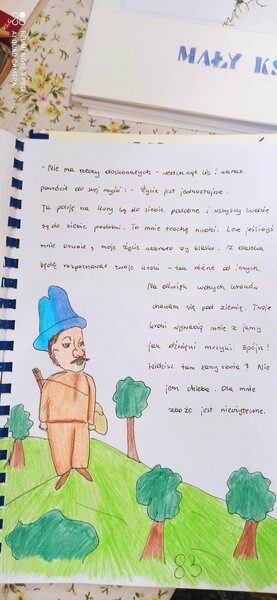 MAŁY KS
- Nie ma rzeczy doskonałych - westchnął lis i zaraz
powrócił do swej myśli: - Życie jest jednostajne.
Ja poluję na kury, są do siebie podobne i wszyscy ludzie
są do siebie podobni. To mnie trochę nudzi. Lecz jeśli byś
mnie oswoił, moje życie nabrało by blasku. Z daleka
będę rozpoznawał twoje kroki - tak różne od innych.
Na dźwięk kroków
chowam się pod ziemię. Twoje
kroki wywabią mnie z jamy
jak dźwięki muzyki. Spójrz!
Widzisz tam łany zboża? Nie
jem chleba. Dla mnie
zboże jest nieużyteczne.
83